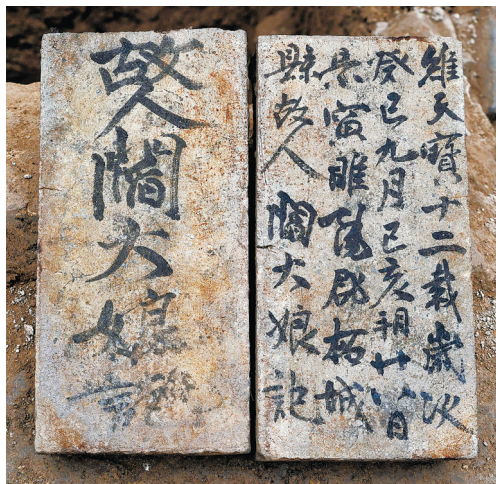 維天寶十二載歲次
癸巳九月己亥朔廿八日
寅睢陽郡柘城
縣故人大娘記
故人大娘記